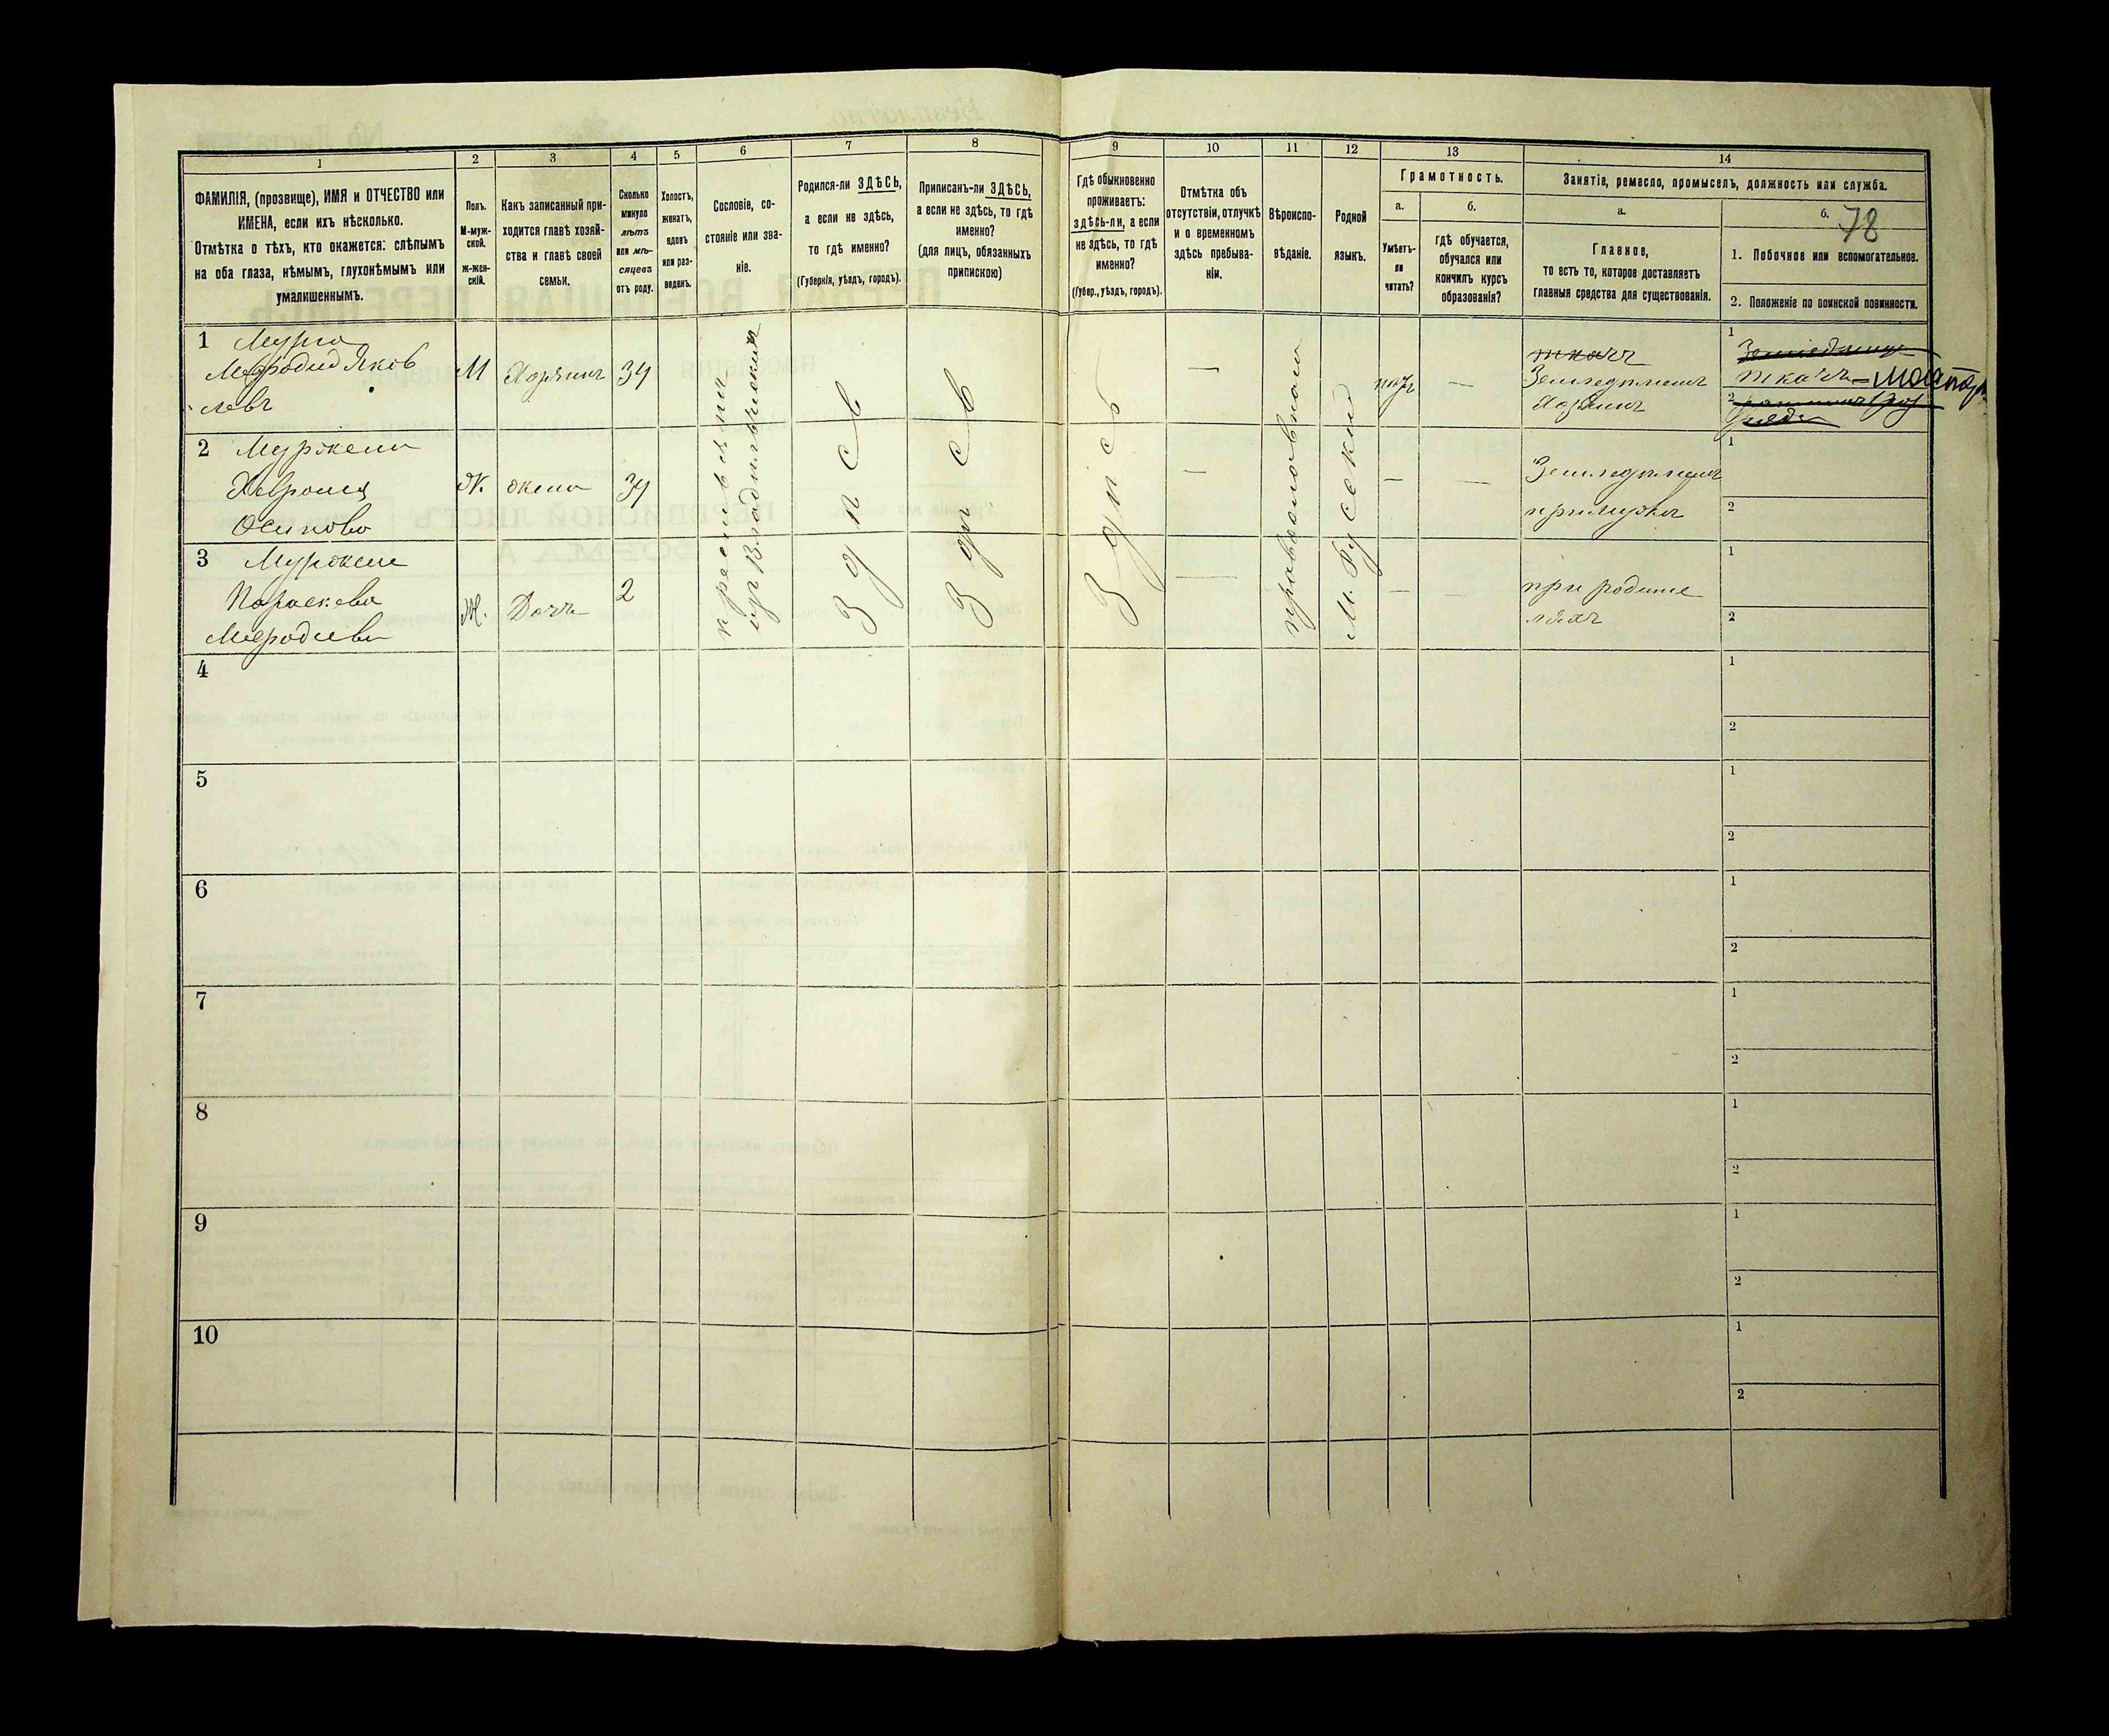 1
2
3
4
5
6
7
8
9
10
11
12
13
14
ФАМИЛІЯ, (прозвище), ИМЯ и ОТЧЕСТВО или
ИМЕНА, если ихъ нѣсколько.
Отмѣтка о тѣхъ, кто окажется: слѣпымъ
на оба глаза, нѣмымъ, глухонѣмымъ или
умалишеннымъ.
Полъ.
М-муж-
ской.
ж-жен-
скій.
Какъ записанный при-
ходится главѣ хозяй-
ства и главѣ своей
семьи.
Сколько
минуло
лѣтъ
или мѣ-
сяцевъ
отъ роду.
Холостъ,
женатъ,
вдовъ
или раз-
веденъ.
Сословіе, со-
стояніе или зва-
ніе.
Родился-ли ЗДѢСЬ,
а если не здѣсь,
то гдѣ именно?
(Губернія, уѣздъ, городъ).
Приписанъ-ли ЗДѢСЬ,
а если не здѣсь, то гдѣ
именно?
(для лицъ, обязанныхъ
припискою)
Гдѣ обыкновенно
проживаетъ:
здѣсь-ли, а если
не здѣсь, то гдѣ
именно?
(Губер., уѣздъ, городъ).
Отмѣтка объ
отсутствіи, отлучкѣ
и о временномъ
здѣсь пребыва-
ніи.
Вѣроиспо-
вѣданіе.
Родной
языкъ.
Грамотность.
а.
б.
Умѣетъ-
ли
читать?
гдѣ обучается,
обучался или
кончилъ курсъ
образованія?
Занятіе, ремесло, промыселъ, должность или служба.
а.
б.
78
Главное,
то есть то, которое доставляетъ
главныя средства для существованія.
1. Побочное или вспомогательное.
2. Положеніе по воинской повинности.
1
Мефодий Яков
левъ
М
Хозяинъ
34
ткачъ
Земледѣлецъ
Хозяинъ
1
ткачъ - мастер
2
2
Ж.
жена
34
Осипова
Земледѣлецъ
при мужѣ
1
2
3
Параскева
Мефодиева
Ж.
Дочь
2
при родите
ляхъ
1
2
крестьянин
изъ владѣльческихъ
Здѣсь
Здѣсь
Здѣсь
православнаго
М. Русский
4
1
2
5
1
2
6
1
2
7
1
2
8
1
2
9
1
2
10
1
2